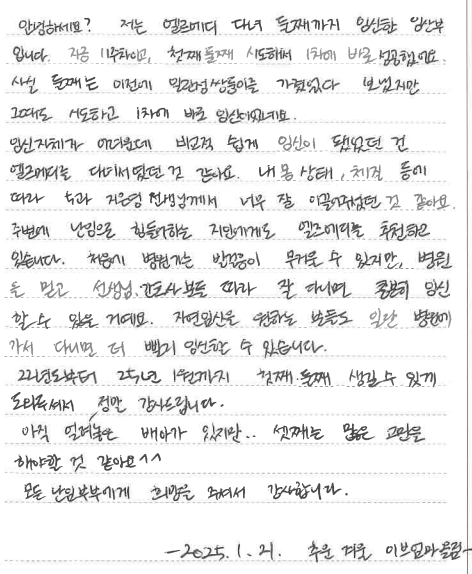 안녕하세요? 저는 엘르메디 다녀 둘째까지 임신한 임산부
입니다. 지금 11주차이고, 첫째 둘째 시도해서 1차에 바로 성공했어요.
사실 둘째는 이전에 일란성쌍둥이를 가졌었다 보냈지만
그때도 시도하고 1차에 바로 임신이었네요.
임신자체가 어려운데 비교적 쉽게 임신이 됐었던 건
엘르메디를 다녀서였던 것 같아요. 내 몸 상태, 체질 등에
따라 5과 지은영 선생님께서 너무 잘 이끌어주셨던 것 같아요.
주변에 난임으로 힘들어하는 지인에게도 엘르메디를 추천하고
있습니다. 처음에 병원가는 발걸음이 무거울 수 있지만, 병원
을 믿고 선생님, 간호사분들 따라 잘 다니면 충분히 임신
할 수 있을 거예요. 자연임신을 원하는 분들도 일단 병원에
가서 다니면 더 빨리 임신할 수 있습니다.
22년도부터 25년 1월까지 첫째 둘째 생길 수 있게
도와주셔서 정말 감사드립니다.
아직 얼려놓은 배아가 있지만.. 셋째는 많은 고민을
해야할 것 같아요^^
모든 난임부부에게 희망을 주셔서 감사합니다.
-2025. 1. 21. 추운 겨울 이브엄마 올림-